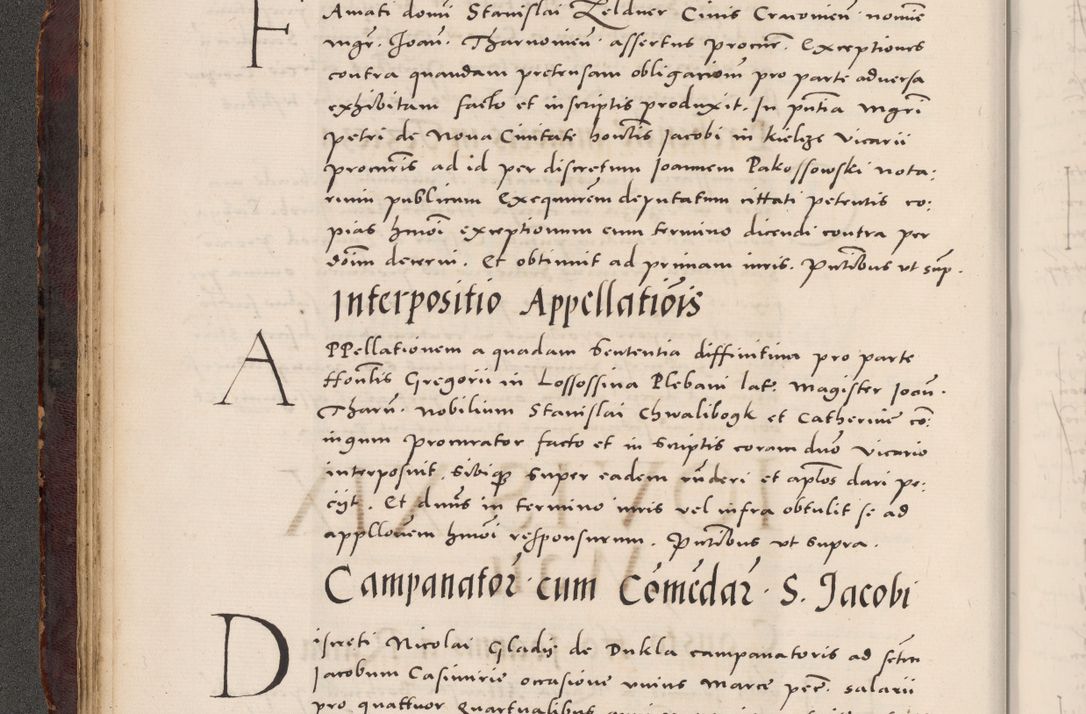 F Amati domi Stanislai Zeldner Civis Cracovien̄ nomīe
Mgr̄. Joan̄. Tharnovien̄ assertus procur̄. Exceptiones
contra quandam pretensam obligationem pro parte adversa
exhibitam facto et in scriptis produxit. In pn̄tia Mgrī
Petri de Nova Civitate hon̄tis Jacobi in Kielcze vicarii
procurīs ad id per discretum Joannem Pakossowski nota:
rium publicum Exequutem deputatum cittati petentis co:
pias hm̄oi exceptionum cum termino dicendi contra per
dōim decerni. Et obtinuit ad primam iuris. Pn̄tibus ut sup̄.
Interpositio Appellatiōis
APPellationem a quadam Sententia diffinitiva pro parte
Hons̄tis Gregorii in Lossossina Plebani lat̄. Magister Joan̄.
Tharn̄. Nobilium Stanislai Chwalibogk et Catherine cō:
iugum Procurator facto et in Scriptis coram dn̄o vicario
interposuit. Sibiq̄ꝫ Super eadem rn̄deri et apl̄os dari pe:
ciit. Et dn̄us in termino iuris vel infra obtulit se ad
appllōnem hm̄oi responsurum. Pn̄tibus ut supra.
Campanator̄ cum Cōmēdar̄. S. Jacobi
Discreti Nicolai Gladij de Dukla campanatoris ad sctm̄
Jacobum Casimirie occasione unius Marce pec̄. salarii
pro quattuor quartualibus